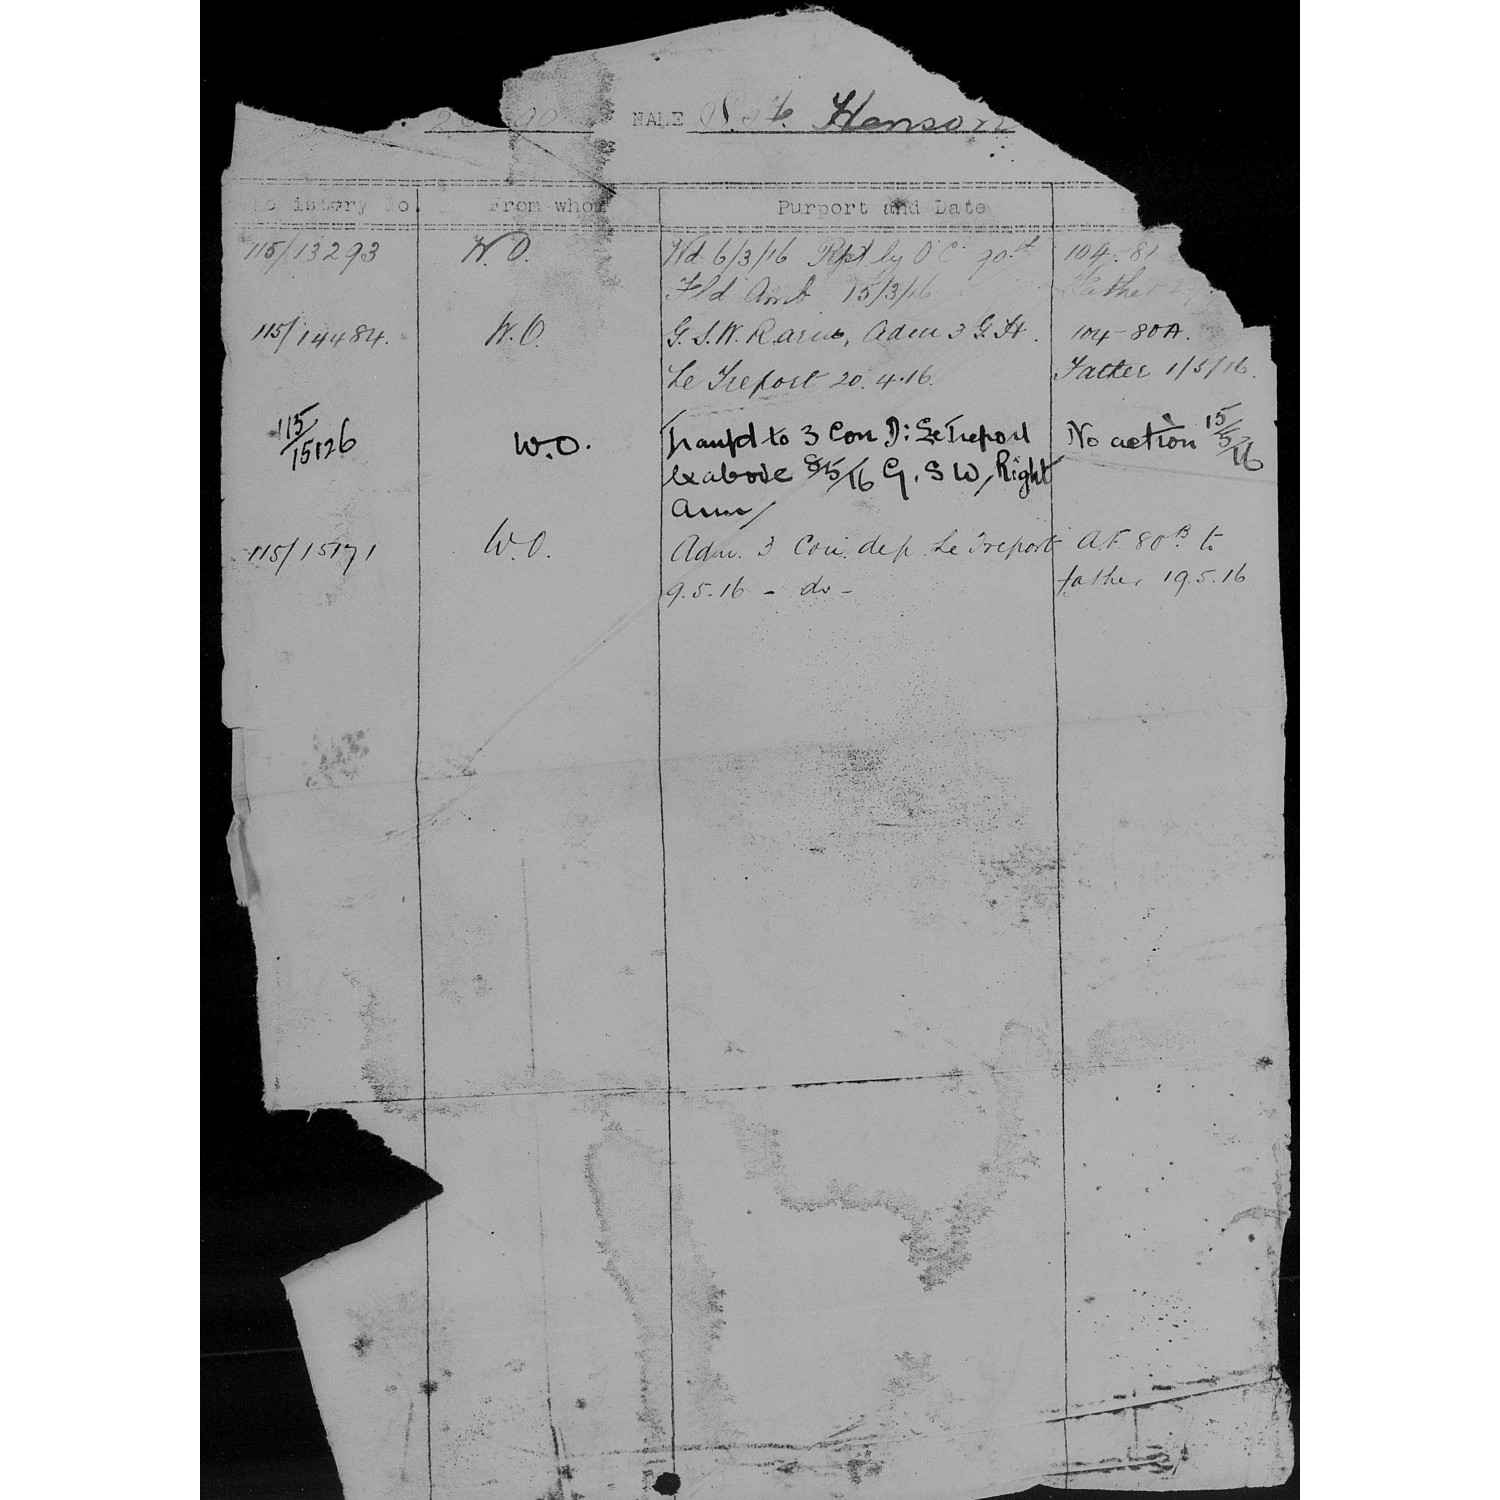 NAME Henson
From whom Purport and Date
115/13293 W.O. Wd 6/3/16 Rpt by O C 104-81
Fld Amb 15/3/16 Father
115/14484. W.O. G.S.W. R.arm, Adm 3 G.H. 104-80A.
Le Treport 20.4.16. Father 1/5/16.
115/15126 W.O. Transfd to 3 Con D: Le Treport No action 15/5/16
ex above 8/5/16 G.S.W, Right
Arm
115/15171 W.O. Adm. 3 Con. dep Le Treport A.F. 80B to
9.5.16 - do - father 19.5.16